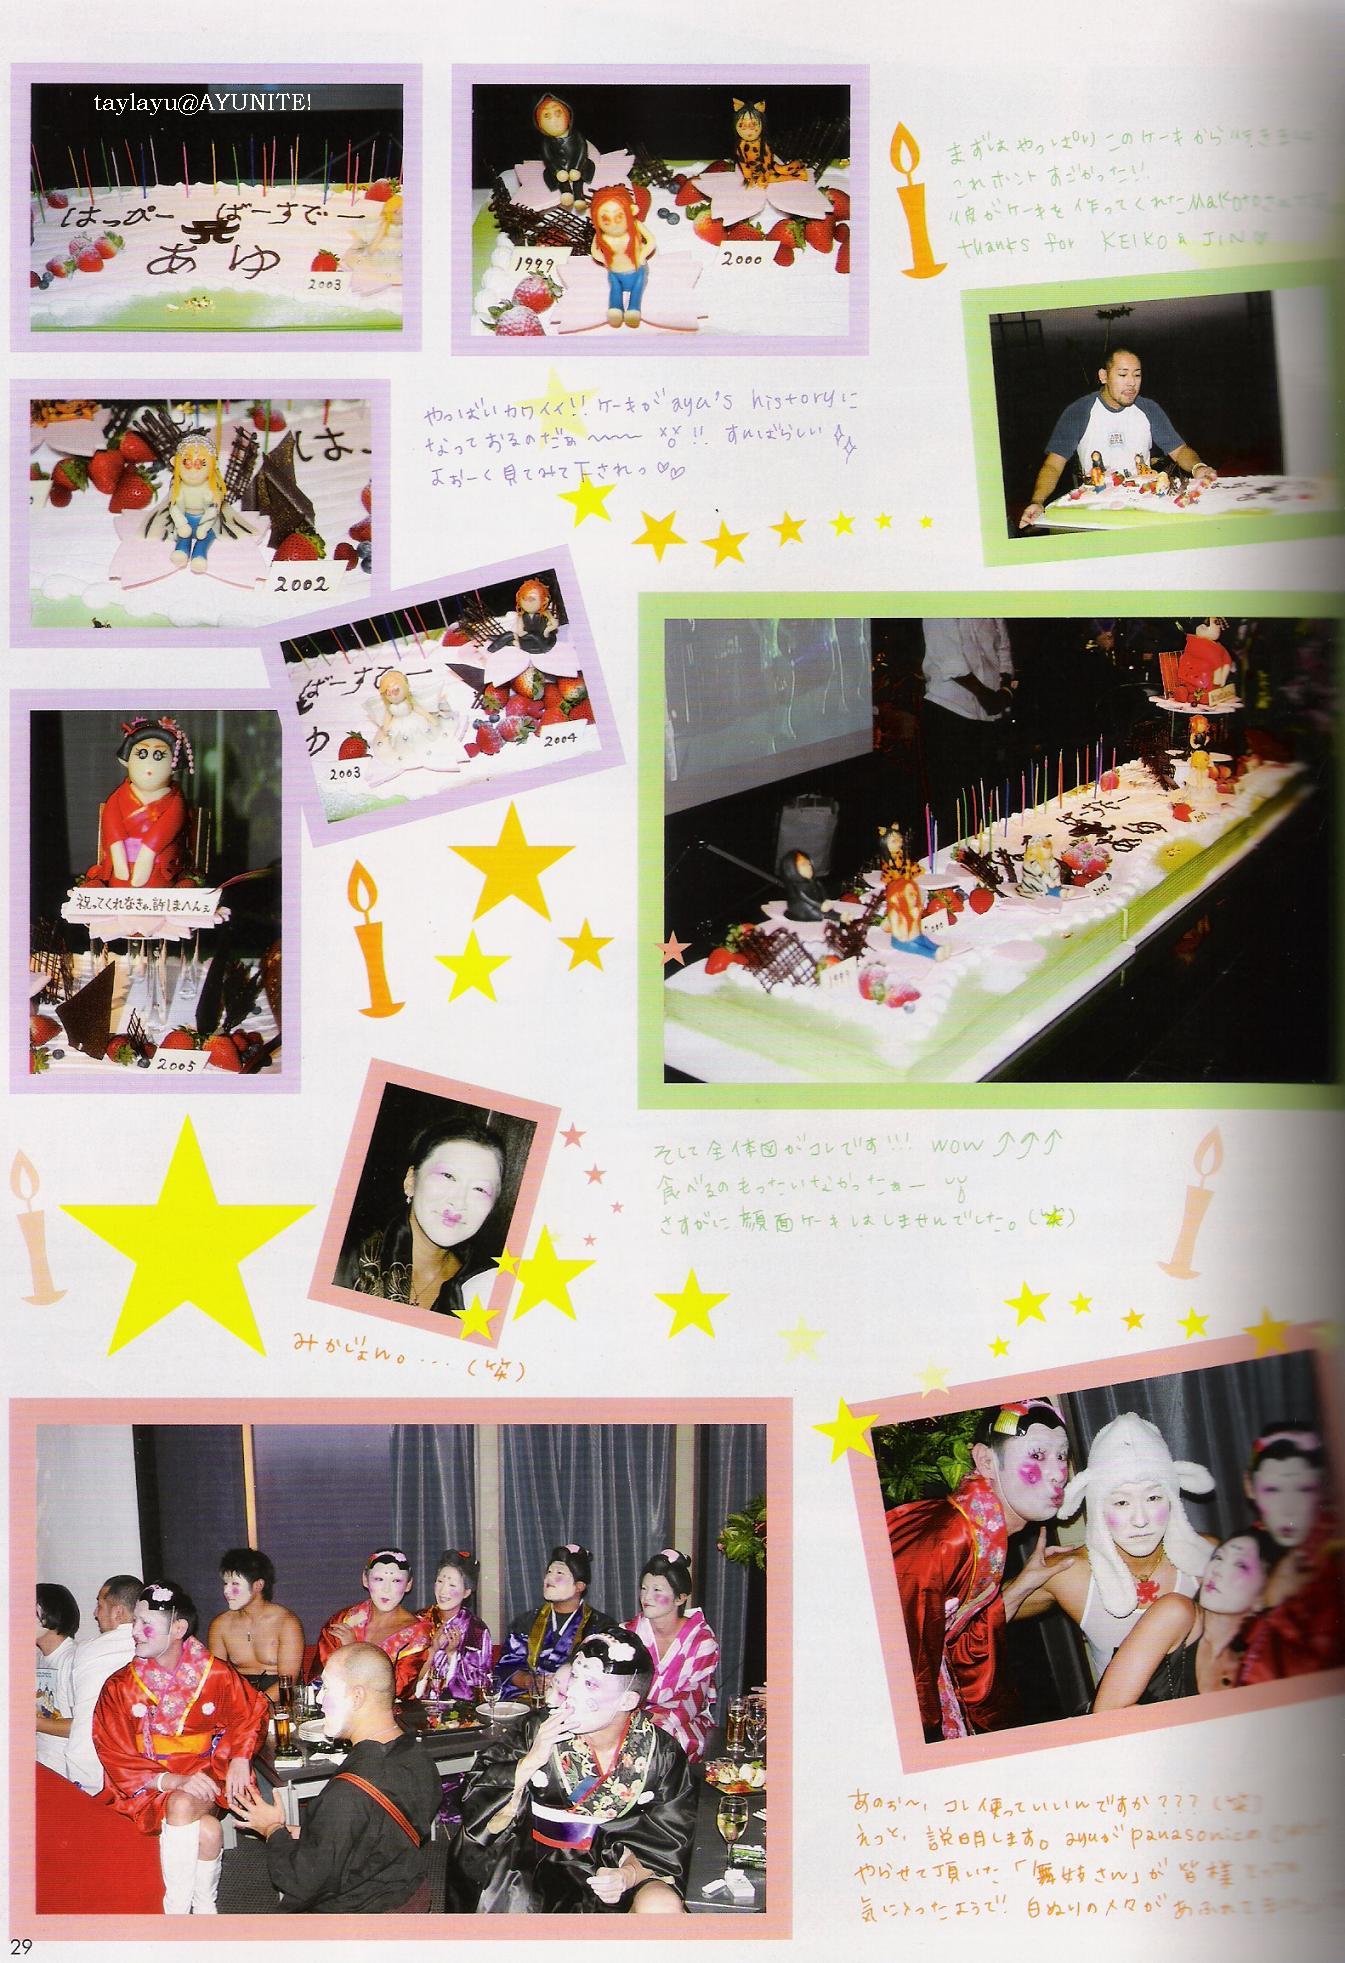 taylayu@AYUNITE!
はっぴー ばーすでー
あゆ
2003
1999
2000
まずはやっぱり このケーキから
これホント すごかった!!
彼がケーキを作ってくれた Makoto
thanks for KEIKO & JIN
やっばいカワイイ!! ケーキが ayu's historyに
なっておるのだぁ〜〜〜 !! すばらしい
よぉーく見てみて下されっ♡♡
は
2002
ばーすでー
ゆ
2003
2004
祝ってくれなきゃ、許しまへんぇ
2005
1999
2000
2002
そして全体図がコレです!!! wow ↗↗↗
食べるのもったいなかったぁー
さすがに顔面ケーキはしませんでした。(笑)
みかじょん。...(笑)
あのぉ〜、コレ使っていいんですか???(笑)
えっと、説明します。ayuがpanasonic
やらせて頂いた「舞妓さん」が皆様
気に入ったようで! 白ぬりの人々があふれて
29